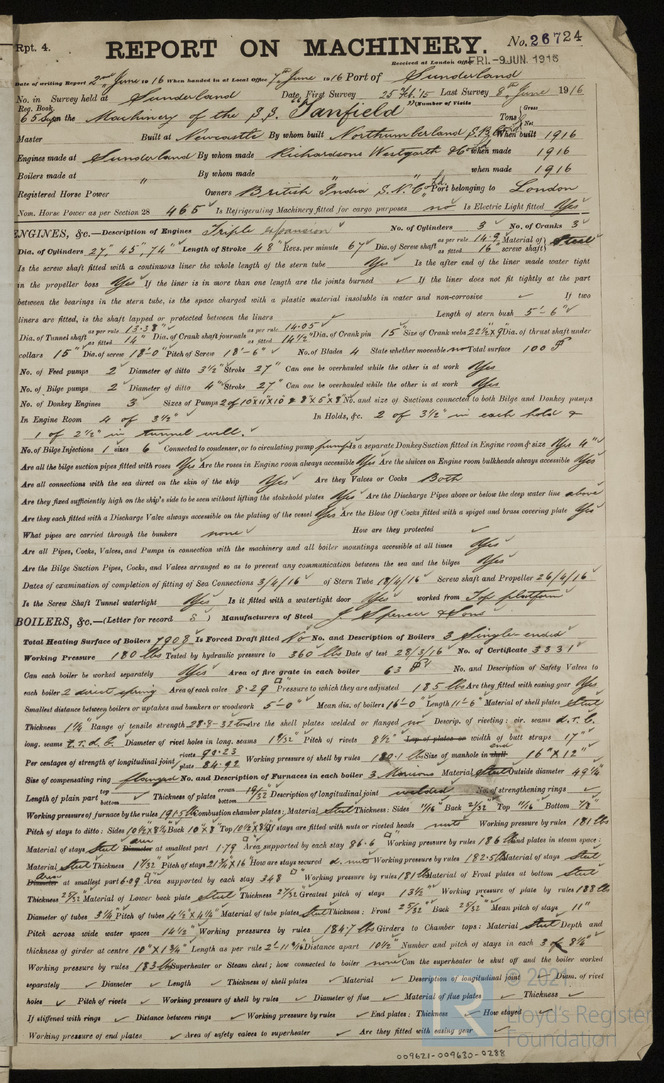 Rpt. 4.
REPORT ON MACHINERY. No. 26724
Received at London Office FRI.-9 JUN 1916
Date of writing Report 2nd June 1916 When handed in at Local Office 7th June 1916 Port of Sunderland
No. in Survey held at Sunderland Date, First Survey 25 Feb. '15 Last Survey 8th June 1916
Reg. Book. (Number of Visits
on the Machinery of the S.S. "Tanfield" Tons Gross Net
Master Built at Newcastle By whom built Northumberland S.B. When built 1916
Engines made at Sunderland By whom made Richardsons Westgarth & Co when made 1916
Boilers made at " By whom made when made 1916
Registered Horse Power Owners British India S.N. Co Ld Port belonging to London
Nom. Horse Power as per Section 28 465 Is Refrigerating Machinery fitted for cargo purposes no Is Electric Light fitted Yes
ENGINES, &c.—Description of Engines Triple expansion No. of Cylinders 3 No. of Cranks 3
Dia. of Cylinders 27", 45", 74" Length of Stroke 48" Revs. per minute 67 Dia. of Screw shaft as per rule 14.9 as fitted 16" Material of screw shaft Steel
Is the screw shaft fitted with a continuous liner the whole length of the stern tube Yes Is the after end of the liner made water tight
in the propeller boss Yes If the liner is in more than one length are the joints burned ✓ If the liner does not fit tightly at the part
between the bearings in the stern tube, is the space charged with a plastic material insoluble in water and non-corrosive ✓ If two
liners are fitted, is the shaft lapped or protected between the liners ✓ Length of stern bush 5'-6"
Dia. of Tunnel shaft as per rule 13.38" as fitted 14" Dia. of Crank shaft journals as per rule 14.05" as fitted 14½" Dia. of Crank pin 15" Size of Crank webs 22½ x 9 Dia. of thrust shaft under
collars 15" Dia. of screw 18'-0" Pitch of Screw 18'-6" No. of Blades 4 State whether moveable no Total surface 100
No. of Feed pumps 2 Diameter of ditto 3½" Stroke 27" Can one be overhauled while the other is at work Yes
No. of Bilge pumps 2 Diameter of ditto 4" Stroke 27" Can one be overhauled while the other is at work Yes
No. of Donkey Engines 3 Sizes of Pumps No. and size of Suctions connected to both Bilge and Donkey pumps
In Engine Room 4 of 3½" In Holds, &c. 2 of 3½" in each hold &
1 of 2½" in tunnel well.
No. of Bilge Injections 1 sizes 6 Connected to condenser, or to circulating pump pump Is a separate Donkey Suction fitted in Engine room & size Yes 4"
Are all the bilge suction pipes fitted with roses Yes Are the roses in Engine room always accessible Yes Are the sluices on Engine room bulkheads always accessible Yes
Are all connections with the sea direct on the skin of the ship Yes Are they Valves or Cocks Both
Are they fixed sufficiently high on the ship's side to be seen without lifting the stokehold plates Yes Are the Discharge Pipes above or below the deep water line above
Are they each fitted with a Discharge Valve always accessible on the plating of the vessel Yes Are the Blow Off Cocks fitted with a spigot and brass covering plate Yes
What pipes are carried through the bunkers none How are they protected ✓
Are all Pipes, Cocks, Valves, and Pumps in connection with the machinery and all boiler mountings accessible at all times Yes
Are the Bilge Suction Pipes, Cocks, and Valves arranged so as to prevent any communication between the sea and the bilges Yes
Dates of examination of completion of fitting of Sea Connections 3/4/16 of Stern Tube 18/4/16 Screw shaft and Propeller 26/4/16
Is the Screw Shaft Tunnel watertight Yes Is it fitted with a watertight door Yes worked from Top platform
BOILERS, &c.—(Letter for record S) Manufacturers of Steel J. Spencer & Sons
Total Heating Surface of Boilers 7908 Is Forced Draft fitted No No. and Description of Boilers 3 Single ended
Working Pressure 180 lbs Tested by hydraulic pressure to 360 lbs Date of test 28/3/16 No. of Certificate 3331
Can each boiler be worked separately Yes Area of fire grate in each boiler 63 No. and Description of Safety Valves to
each boiler 2 direct spring Area of each valve 8.29 Pressure to which they are adjusted 185 lbs Are they fitted with easing gear Yes
Smallest distance between boilers or uptakes and bunkers or woodwork 5'-0" Mean dia. of boilers 16'-0" Length 11'-6" Material of shell plates Steel
Thickness Range of tensile strength 28.8-32 tons Are the shell plates welded or flanged no Descrip. of riveting: cir. seams d.r.l.
long. seams t.r.d.b. Diameter of rivet holes in long. seams Pitch of rivets 8½" Lap of plates or width of butt straps 17"
Per centages of strength of longitudinal joint rivets 93.23 plate 84.92 Working pressure of shell by rules 180.1 lbs Size of manhole in shell end 16" x 12"
Size of compensating ring flanged No. and Description of Furnaces in each boiler 3 Morisons Material Steel Outside diameter 49¼"
Length of plain part top bottom ✓ Thickness of plates crown bottom 19/32" Description of longitudinal joint welded No. of strengthening rings ✓
Working pressure of furnace by the rules 191.5 lbs Combustion chamber plates: Material Steel Thickness: Sides Back 21/32" Top Bottom
Pitch of stays to ditto: Sides Back 10 x 8 Top If stays are fitted with nuts or riveted heads nuts Working pressure by rules 181 lbs
Material of stays Steel Diameter area at smallest part 1.79 Area supported by each stay 86.6 Working pressure by rules 186 lbs End plates in steam space:
Material Steel Thickness Pitch of stays How are stays secured d. nuts Working pressure by rules 182.5 lbs Material of stays Steel
Diameter area at smallest part 6.09 Area supported by each stay 348 Working pressure by rules 181 lbs Material of Front plates at bottom Steel
Thickness Material of Lower back plate Steel Thickness Greatest pitch of stays 13¼" Working pressure of plate by rules 183 lbs
Diameter of tubes 3¼" Pitch of tubes 4½" x 4¼" Material of tube plates Steel Thickness: Front Back Mean pitch of stays 11"
Pitch across wide water spaces 14½" Working pressures by rules 184.7 lbs Girders to Chamber tops: Material Steel Depth and
thickness of girder at centre 10" x 1¾" Length as per rule Distance apart 10½" Number and pitch of stays in each 3 @ 8¼"
Working pressure by rules 183 lbs Superheater or Steam chest; how connected to boiler none Can the superheater be shut off and the boiler worked
separately ✓ Diameter ✓ Length ✓ Thickness of shell plates ✓ Material ✓ Description of longitudinal joint ✓ Diam. of rivet
holes ✓ Pitch of rivets ✓ Working pressure of shell by rules ✓ Diameter of flue ✓ Material of flue plates ✓ Thickness ✓
If stiffened with rings ✓ Distance between rings ✓ Working pressure by rules ✓ End plates: Thickness ✓ How stayed ✓
Working pressure of end plates ✓ Area of safety valves to superheater ✓ Are they fitted with easing gear ✓
© 2021
Lloyd's Register
Foundation
009621-009630-0288